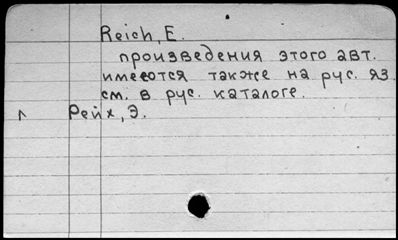 Reich, E.
произведения этого авт.
имеются также на рус. яз.
см. в рус. каталоге.
^ Рейх, Э.